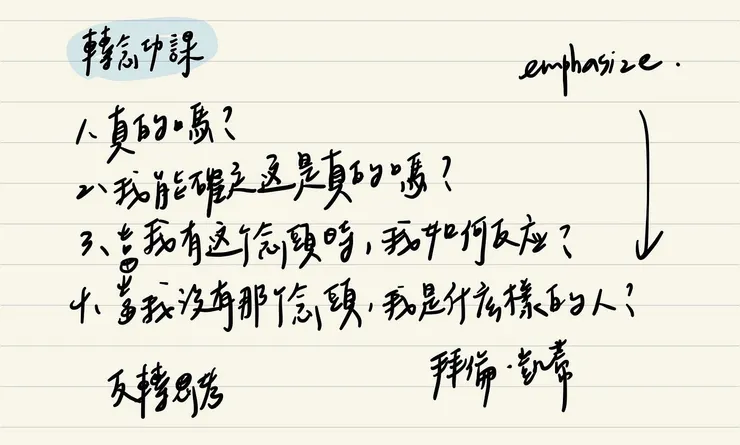 轉念功課
emphasize.
1、真的嗎?
2、我能確定这是真的嗎?
3、當我有这个念頭時,我如何反应?
4、當我沒有那个念頭,我是什么樣的人?
反轉思考
拜倫·凱蒂